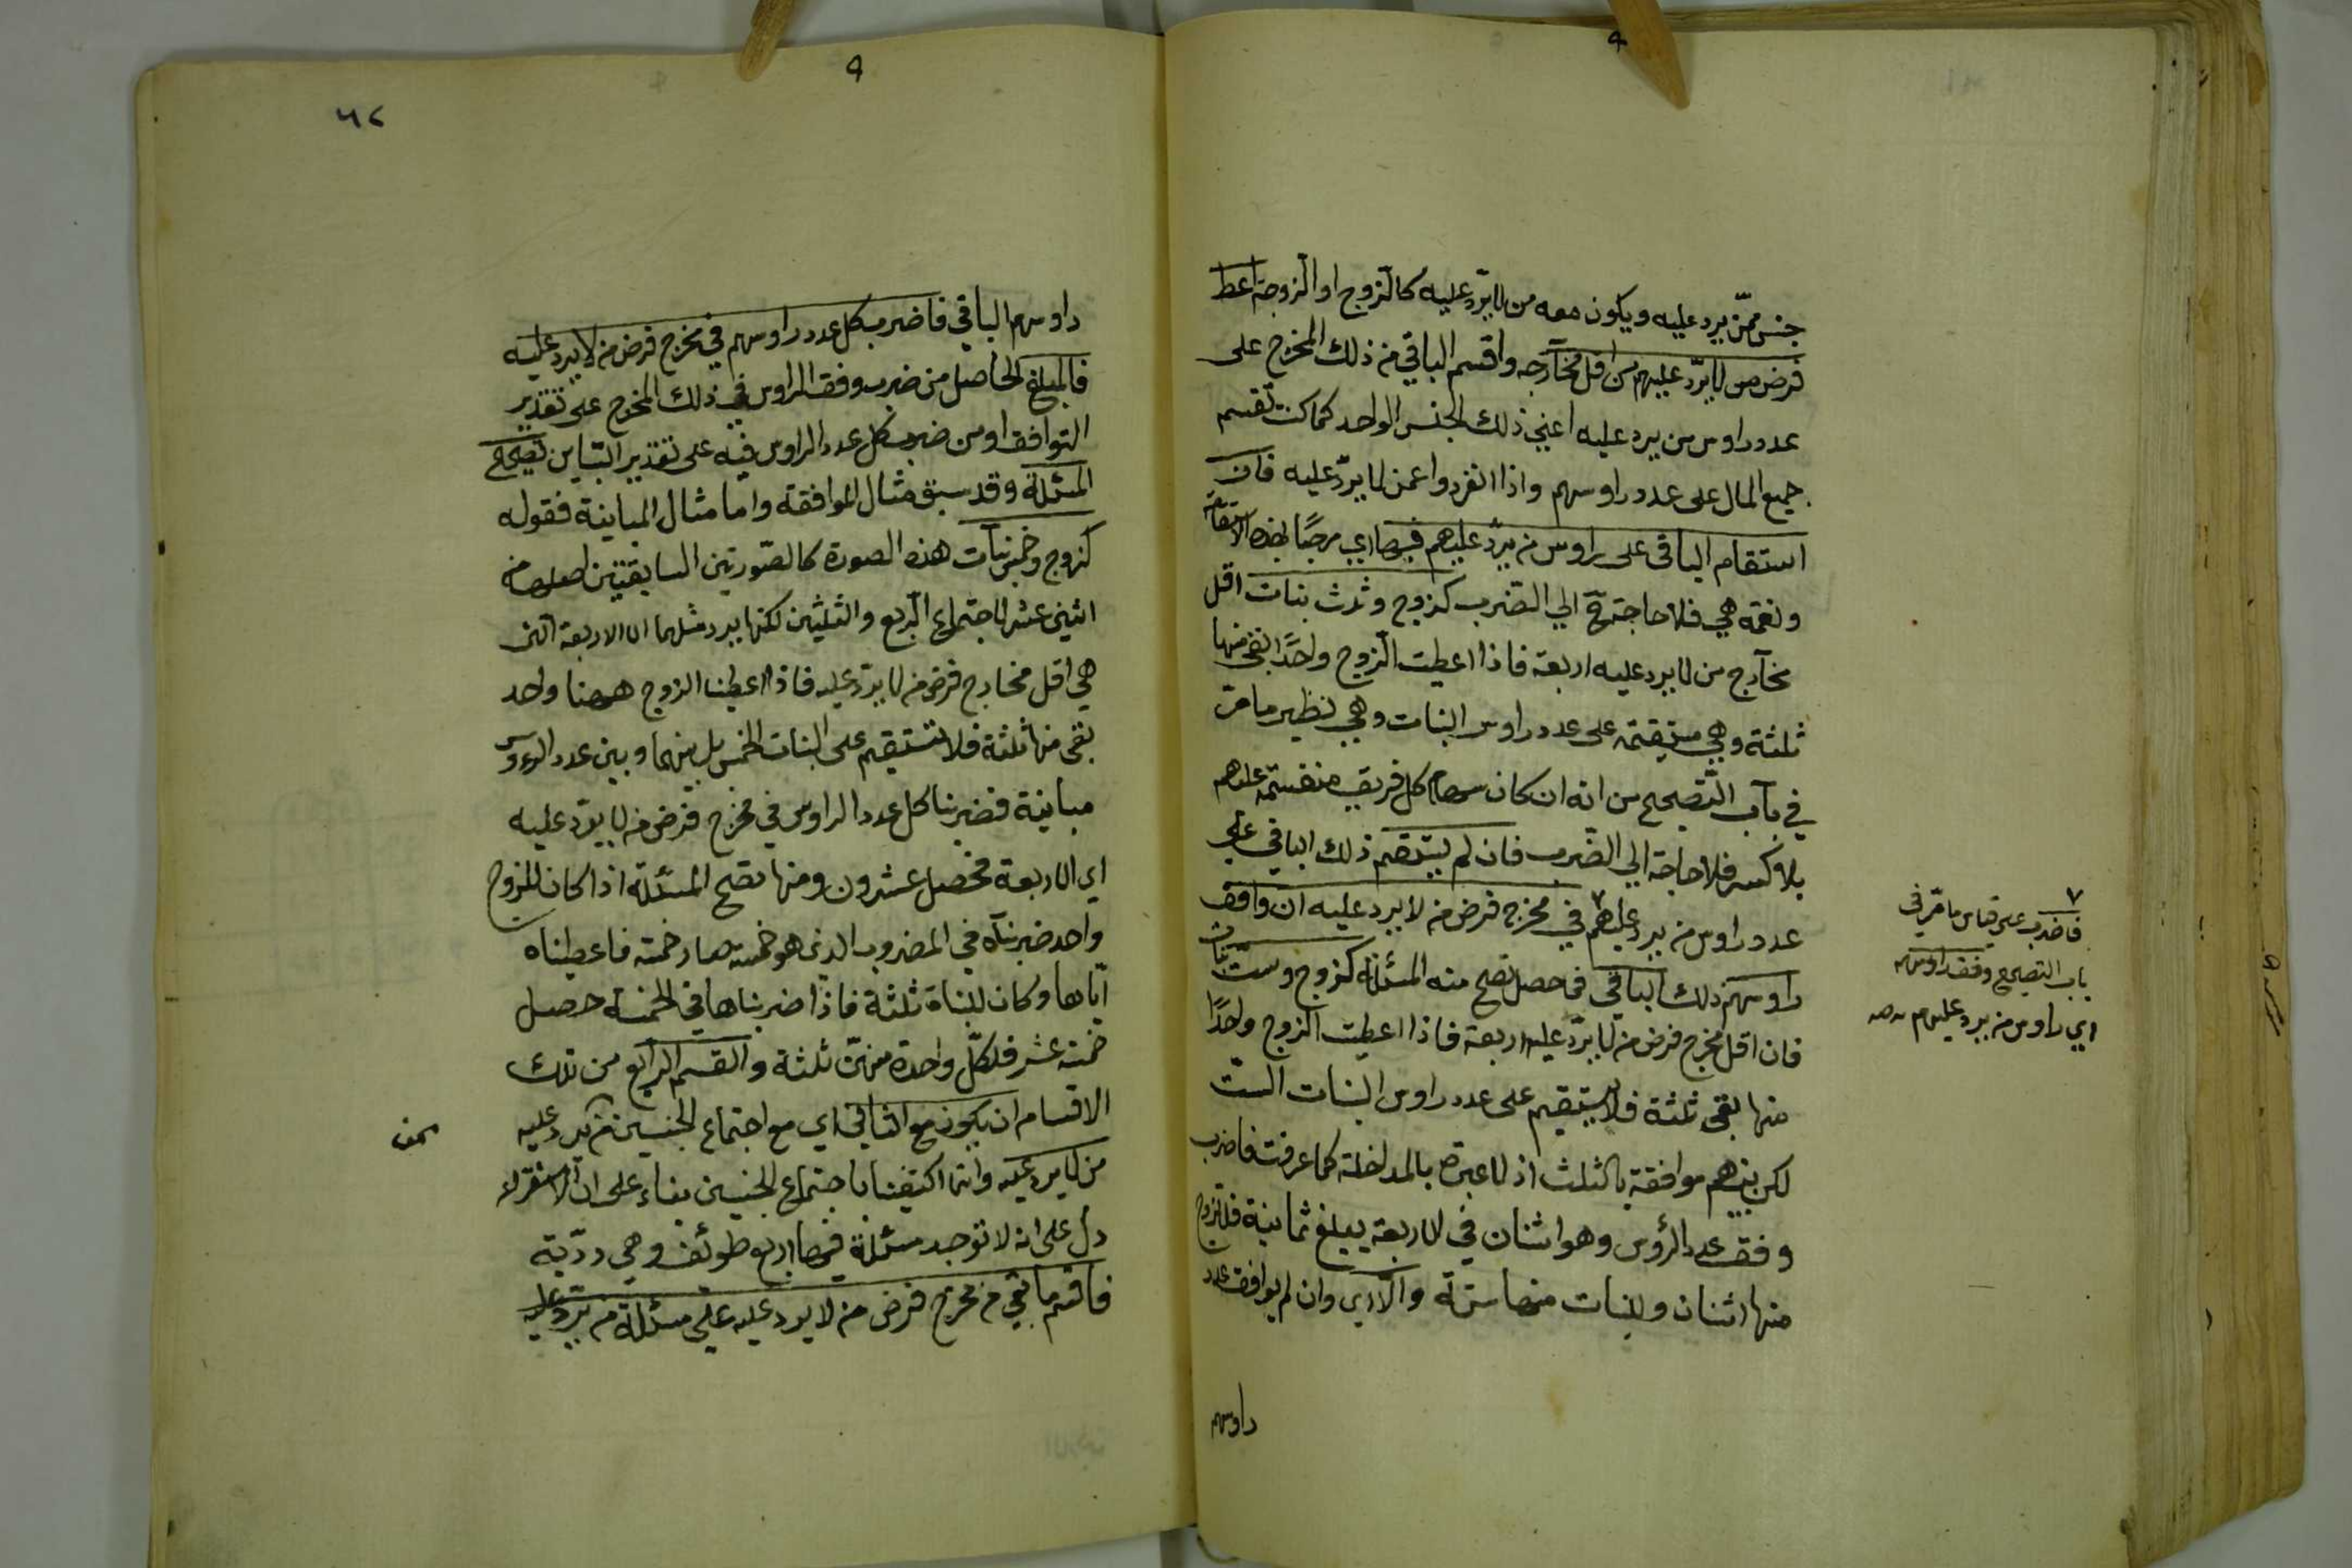 جنس ممّن يرد عليه ويكون معه من لا يرّد عليه كالزوج او الزوجة اعط
فرض من لا يرّد عليهم من اقل مخارجه واقسم الباقي من ذلك المخرج على
عدد راوس من يرد عليه اعني ذلك الجنس الواحد كما كنت تقسم
جميع المال على عدد راوسهم واذا انفردوا عمن لا يرّد عليه فان
استقام الباقي على راوس من يرّد عليهم فبها اي مرحبًا بهذه الاستقامة
ونعمه هي فلا حاجة الي الضرب كزوج وثلث بنات اقل
مخارج من لا يرد عليه اربعة فاذا اعطيت الزوج واحدًا بقي منها
ثلثة وهي مستقيمة على عدد راوس البنات وهي نظير ما مرّ
في باب التصحيح من انه ان كان سهام كل فريق منقسمة عليهم
بلا كسر فلا حاجة الي الضرب فان لم يستقم ذلك الباقي على
عدد راوس من يرد عليهم ٧ في مخرج فرض من لا يرد عليه ان وافق
راوسهم ذلك الباقي فما حصل تصح منه المسئلة كزوج وست بنات
فان اقل مخرج فرض من لا يرّد عليه اربعة فاذا اعطيت الزوج واحدًا
منها بقي ثلثة فلا يستقيم على عدد راوس البنات الستّ
لكن بينهم موافقة بالثلث اذ لا عبرة بالمداخلة كما عرفت فاضرب
وفق عدد الرؤس وهو اثنان في الاربعة يبلغ ثمانية فللزوج
منها اثنان وللبنات منها ستة والّا اي وان لم يوافق عدد
راوسهم
٧
فاضرب على قياس ما مرّ في
باب التصحيح وفق راوسهم
اي راوس من يرد عليهم صه
٦٢
راوسهم الباقي فاضرب كل عدد راوسهم في مخرج فرض من لا يرد عليه
فالمبلغ الحاصل من ضرب وفق الراوس في ذلك المخرج على تقدير
التوافق او من ضرب كل عدد الراوس فيه على تقدير التباين تصحيح
المسئلة وقد سبق مثال الموافقة واما مثال المباينة فقوله
كزوج وخمس بنات هذه الصورة كالصورتين السابقتين اصلها من
اثنى عشر لاجتماع الربع والثلثين لكنها يرد مثلهما الى الاربعة التى
هي اقل مخارج فرض من لا يرّد عليه فاذا اعطينا الزوج ههنا واحد
بقي منها ثلثة فلا تستقيم على البنات الخمس بل بينهما وبين عدد الرءوس
مباينة فضربنا كل عدد الراوس في مخرج فرض من لا يرّد عليه
اي الاربعة فحصل عشرون ومنها تصح المسئلة اذا كان للزوج
واحد ضربناه في المضروب الذى هو خمسة صار خمسة فاعطيناه
اياها وكان للبناة ثلثة فاذا ضربناها في الخمسة حصل
خمسة عشر فلكلّ واحدة منهنّ ثلثة والقسم الرابع من تلك
الاقسام ان يكون مع الثاني اي مع اجتماع الجنسين ممن يرد عليه
من لا يرد عليه وانما اكتفينا باجتماع الجنسين بناء على ان الاستقراء
دلّ على انه لا توجد مسئلة فيها اربع طوائف وهي ردّية
فاقسم ما بقي من مخرج فرض من لا يرد عليه على مسئلة من يرّد عليه